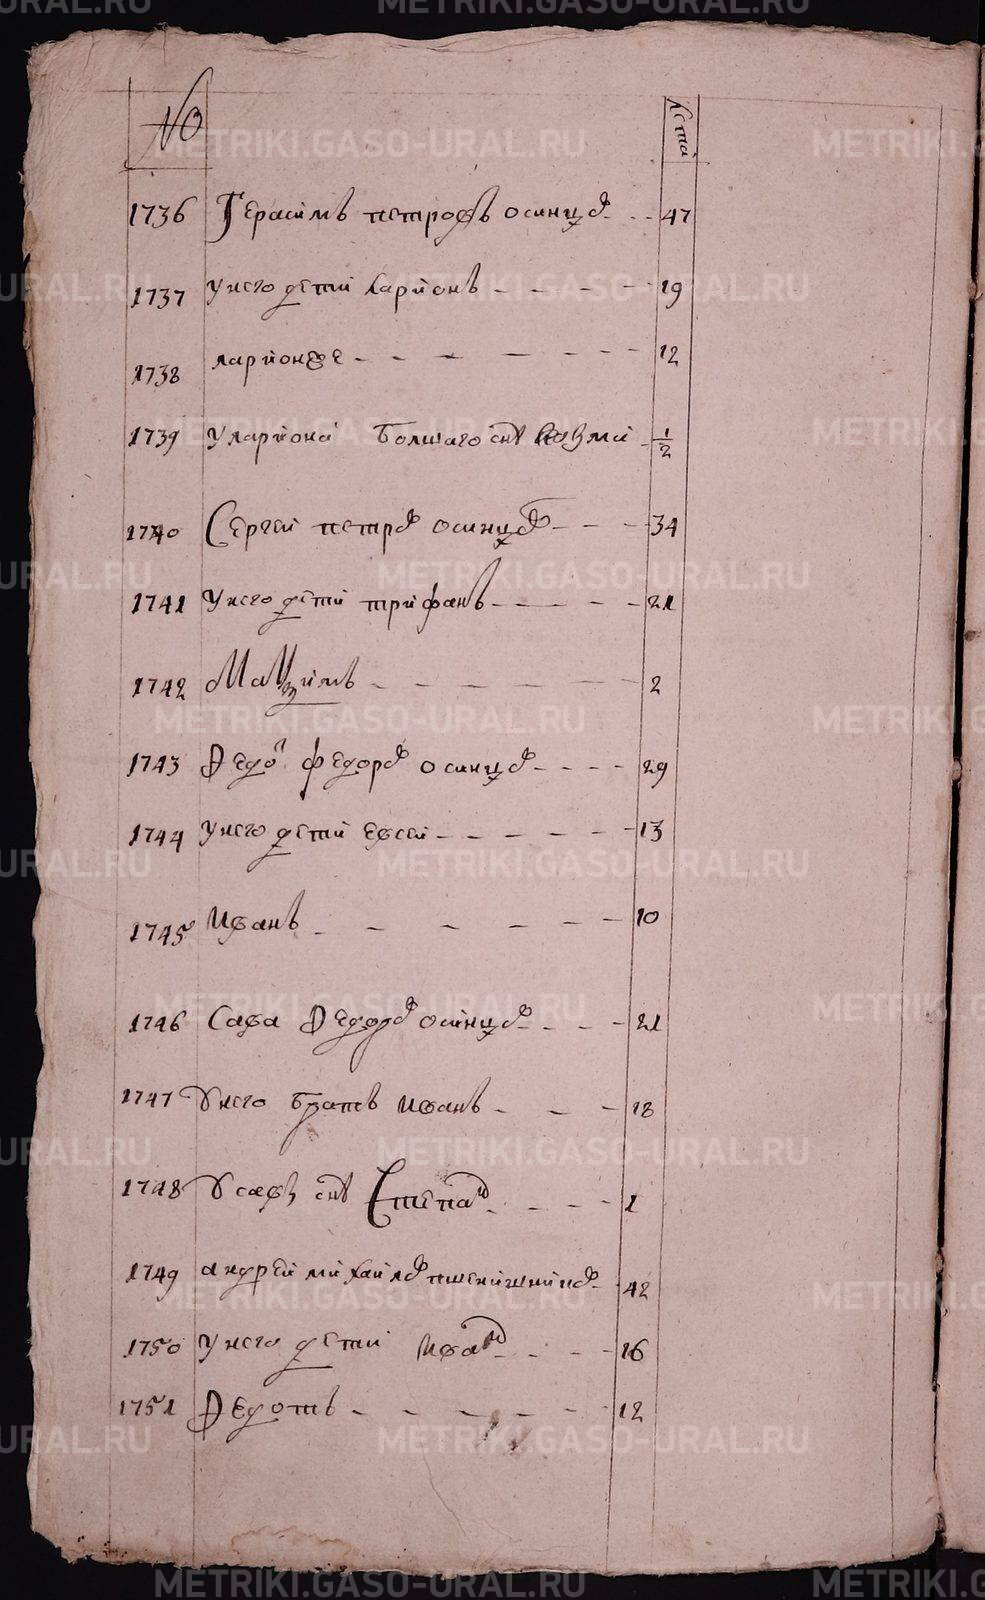 № лета
1736 Герасимъ петровъ осинцов 47
1737 у него детей ларионъ 19
1738 ларион же 12
1739 у лариона болшаго снъ козма 1/2
1740 Сергей петров осинцов 34
1741 у него детей трифанъ 21
1742 Маѯимъ 2
1743 Ѳедор федоров осинцов 29
1744 у него детей евсей 13
1745 иванъ 10
1746 Сава Ѳедоров осинцов 21
1747 у него братъ иванъ 18
1748 у савы снъ Степан 1
1749 андрей михайлов пшенишников 42
1750 у него детей иван 16
1751 Ѳедотъ 12
METRIKI.GASO-URAL.RU